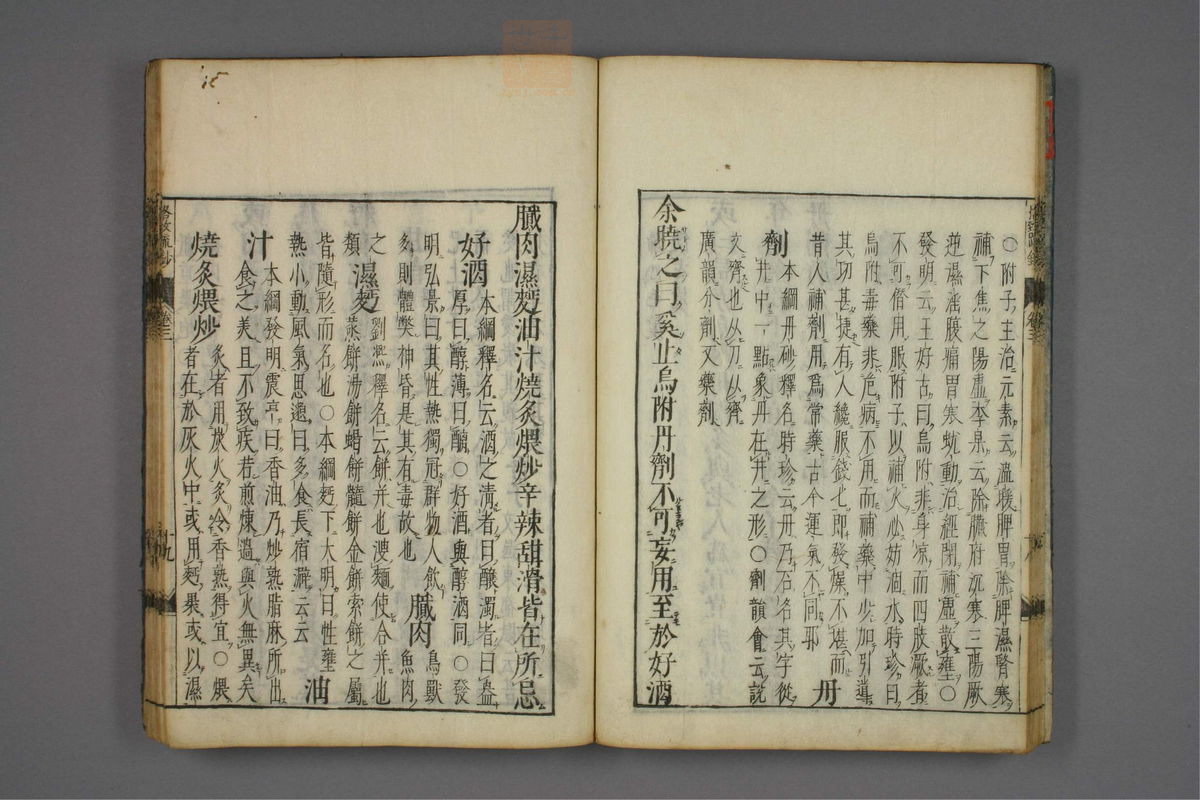 〇附子主治元素云溫暖脾胃除脾濕腎寒
補下焦之陽虛李杲云除臟腑沉寒三陽厥
逆濕淫腹痛胃寒蚘動治經閉補虛散壅〇
發明云王好古曰烏附非身凉而四肢厥者
不可僭用服附子以補火必妨涸水時珍曰
烏附毒藥非危病不用而補藥中少加引導
其功甚捷有人纔服錢匕即發燥不堪而
昔人補劑用爲常藥古今運氣不同耶 丹
本綱丹砂釋名時珍云丹乃石名其字從
井中一點象丹在井之形〇劑韻會云說
劑
文齊也从刀从齊
廣韻分劑又藥劑
余曉之曰奚止烏附丹劑不可妄用至於好酒
臟肉濕麪油汁燒炙煨炒辛辣甜滑皆在所忌
好酒
本綱釋名云酒之淸者曰釀濁者曰盎
厚曰醇薄曰醨〇好酒與醇酒同〇發
明弘景曰其性熱獨冠群物人飮 臟肉 鳥獸
多則體弊神昏是其有毒故也 魚肉
之 濕麪 劉熙釋名云餅并也溲麵使合并也
類 蒸餅湯餅蝎餅髓餅金餅索餅之屬
皆隨形而名也〇本綱麪下大明曰性壅
熱小動風氣思邈曰多食長宿澼云云 油
本綱發明震亨曰香油乃炒熟脂麻所出
汁
食之美且不致疾若煎煉過與火無異矣
燒炙煨炒
炙者用放火炙冷香熟得宜〇煨
者在於灰火中或用麪裹或以濕
十九